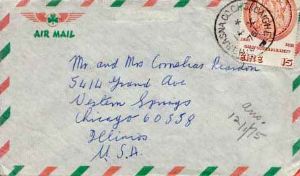 AIR MAIL
Mr. and Mrs Cornelius Reardon
5414 Grand Ave
Western Springs
Chicago 60558
Illinois
U.S.A.
ans:
12/1/75
15
EIRE